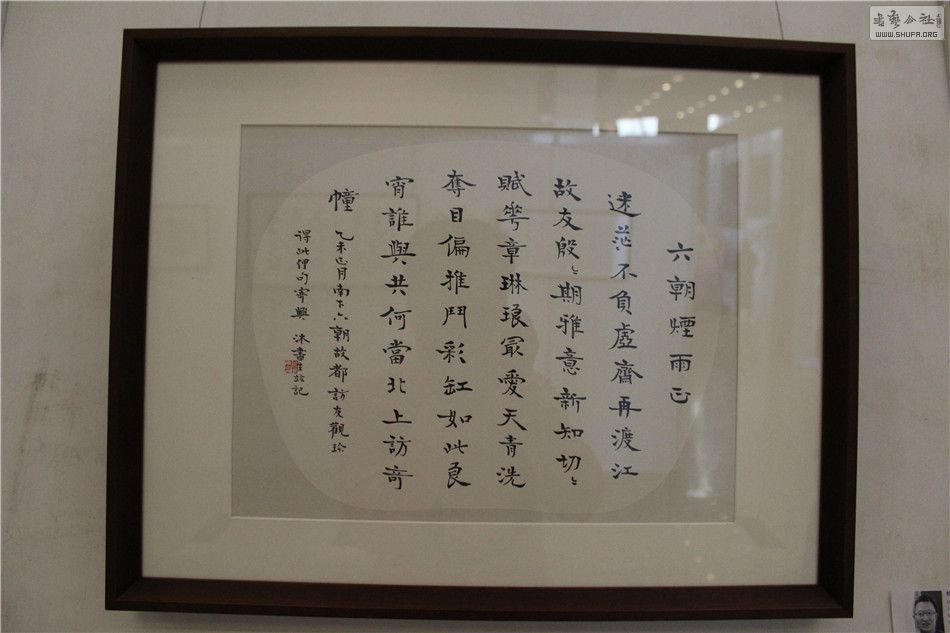 六朝煙雨正
迷茫不負虛齋再渡江
故友殷〻期雅意新知切〻
賦琴章琳琅最愛天青洗
奪目偏推鬥彩缸如此良
宵誰與共何當北上訪奇
幢
乙未正月南下六朝故都訪友觀珍
得此俚句寄興 沐書 記
書藝公社
WWW.SHUFA.ORG